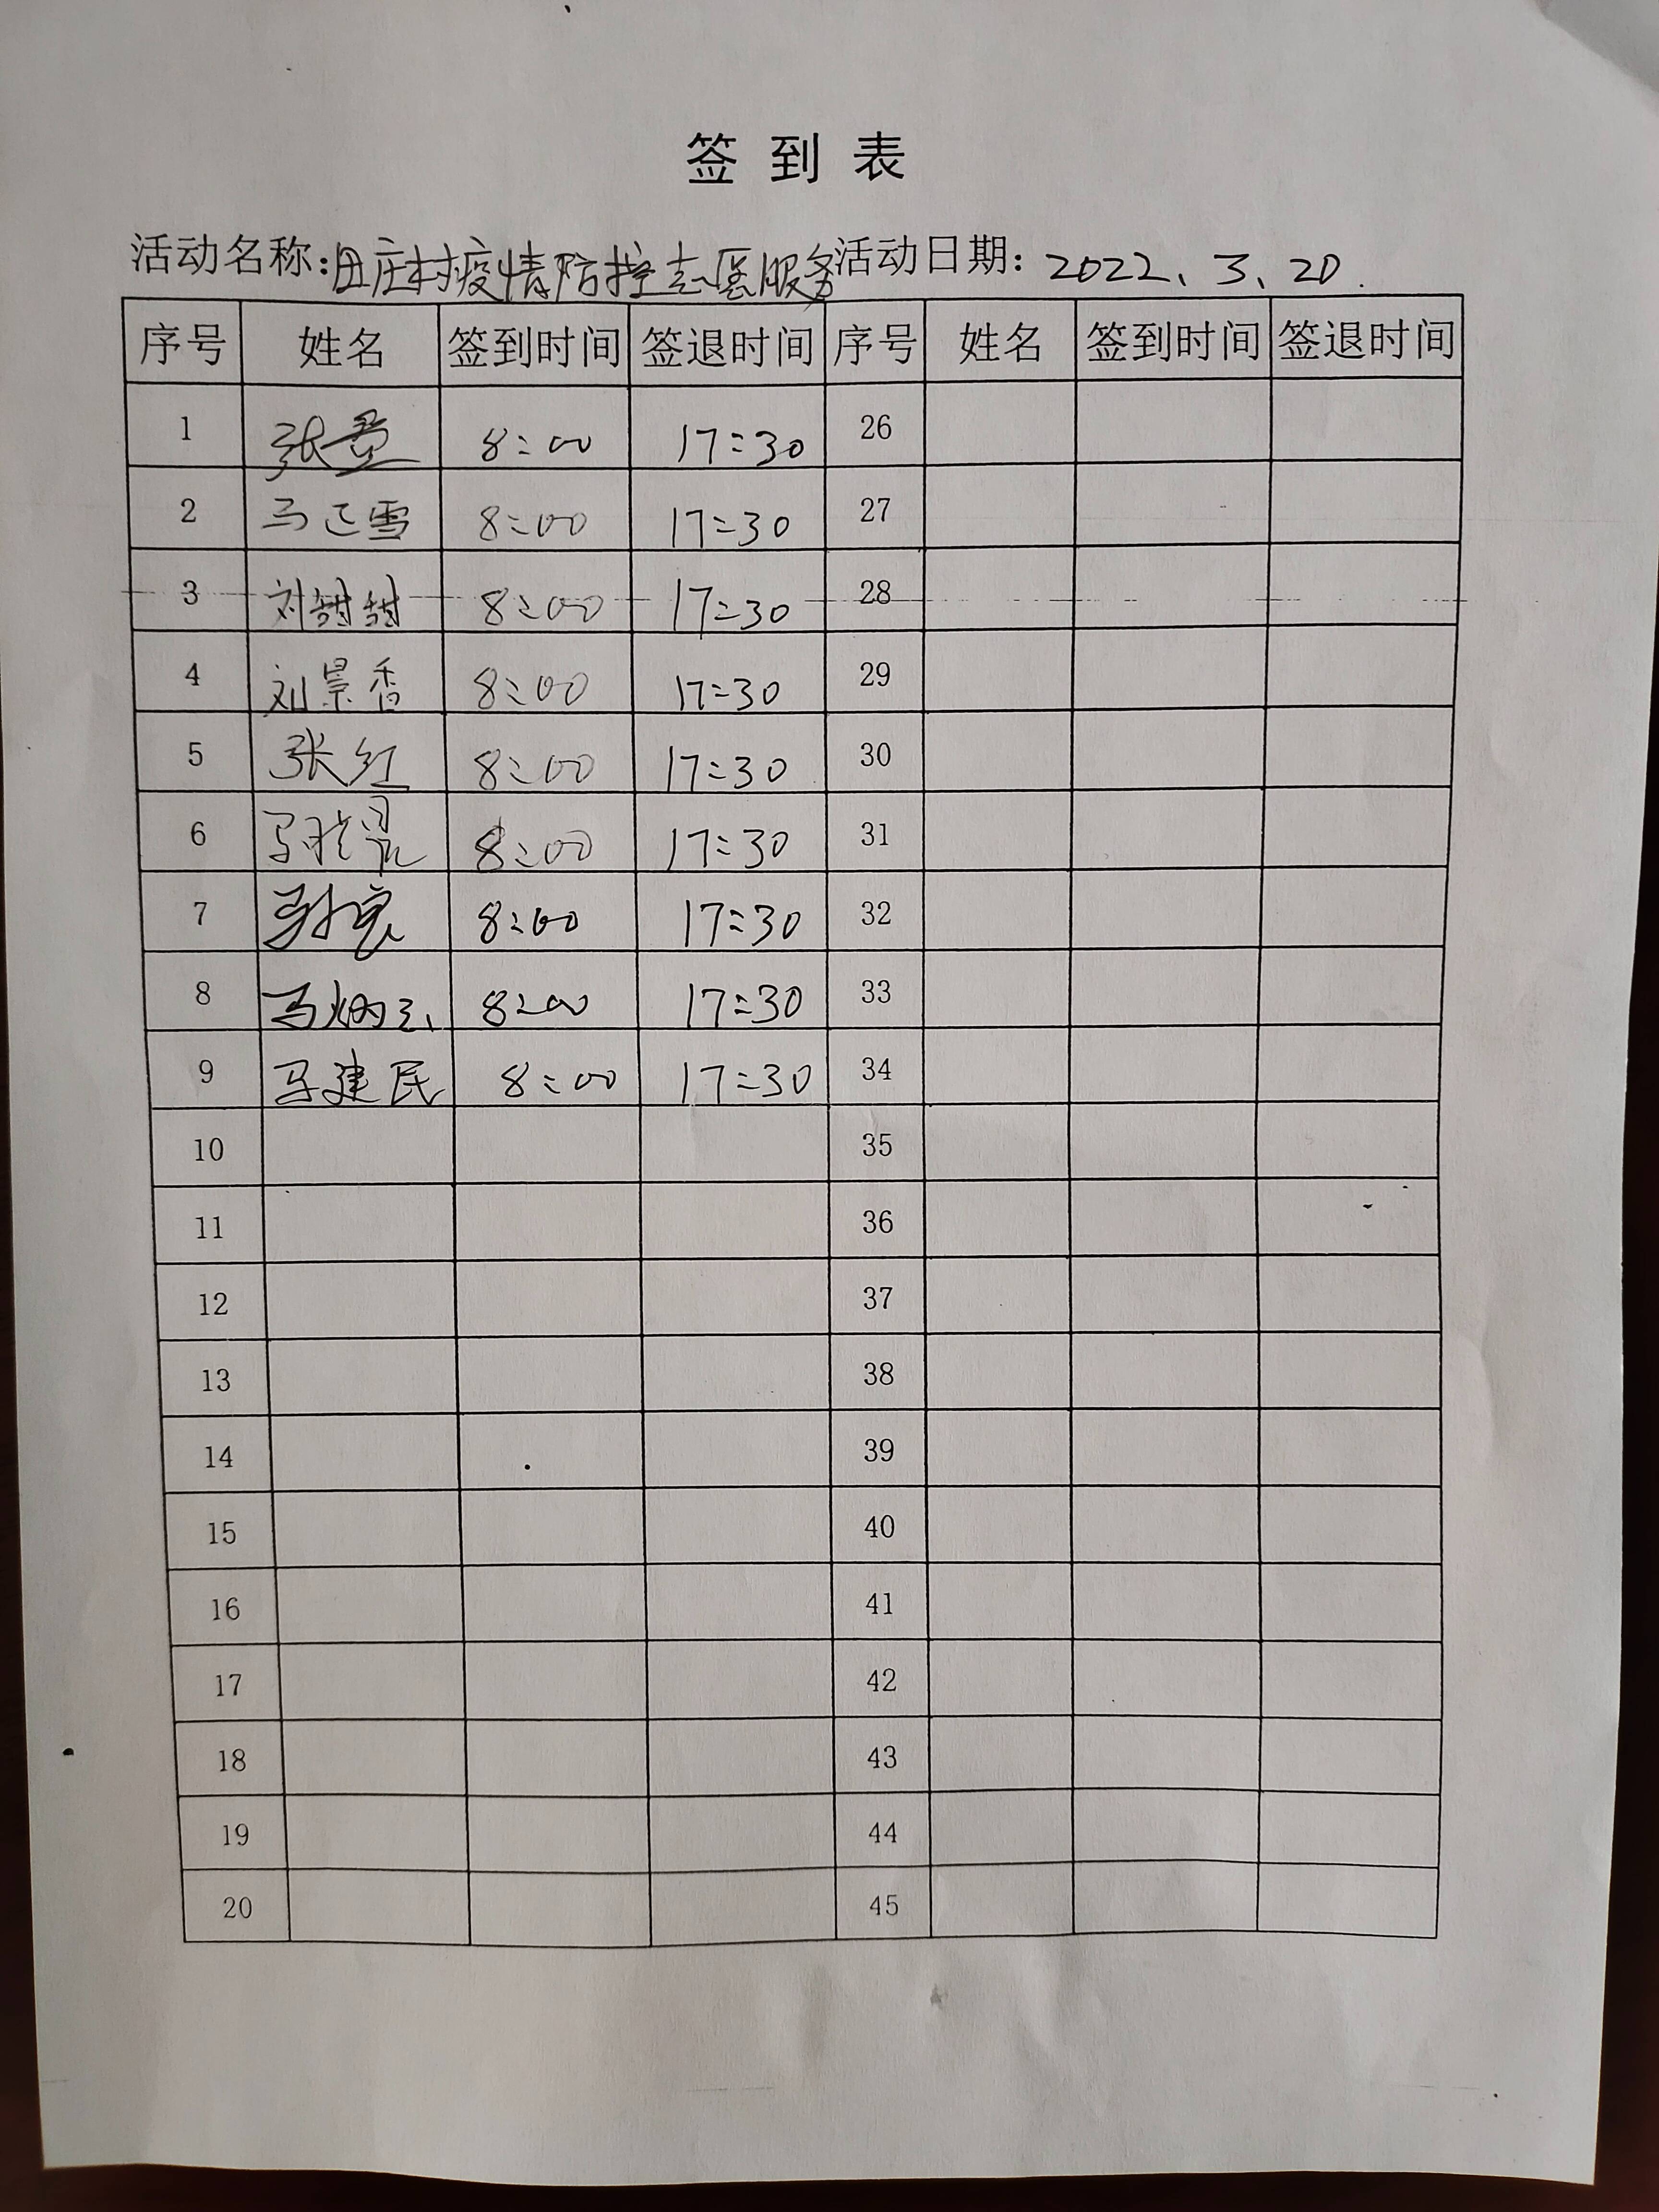 签到表
活动名称:田庄村疫情防控志愿服务 活动日期: 2022、3、20.
序号 姓名 签到时间 签退时间 序号 姓名 签到时间 签退时间
1 张 8:00 17:30 26
2 马正雪 8:00 17:30 27
3 刘甜甜 8:00 17:30 28
4 刘景香 8:00 17:30 29
5 张红 8:00 17:30 30
6 马晓晃 8:00 17:30 31
7 8:00 17:30 32
8 马炳 8:00 17:30 33
9 马建民 8:00 17:30 34
10 35
11 36
12 37
13 38
14 39
15 40
16 41
17 42
18 43
19 44
20 45